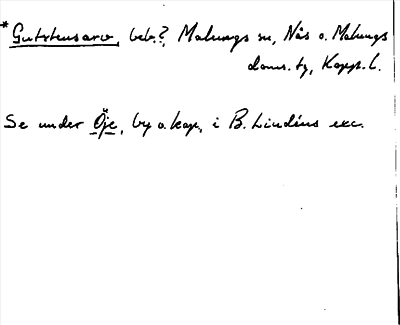 *Gutstensarv, beb.?, Malungs sn, Nås o. Malungs
doms. tg, Kopp. l.
Se under Öje, by o. kap, i B. Lindéns exc.